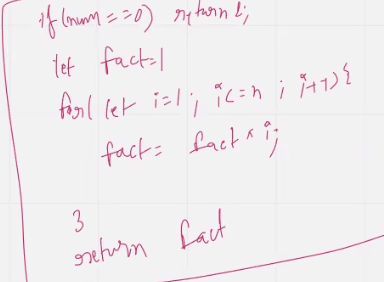 if(num==0) return 1;
let fact=1
for( let i=1 ; i<=n ; i++){
fact= fact * i;
}
return fact